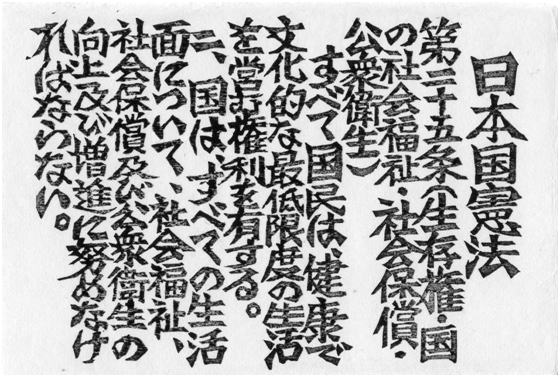 日本国憲法
第二十五条(生存権・国
の社会福祉・社会保償・
公衆衛生)
すべて国民は、健康で
文化的な最低限度の生活
を営む権利を有する。
二、国は、すべての生活
面について、社会福祉、
社会保償及び公衆衛生の
向上及び増進に努めなけ
ればならない。